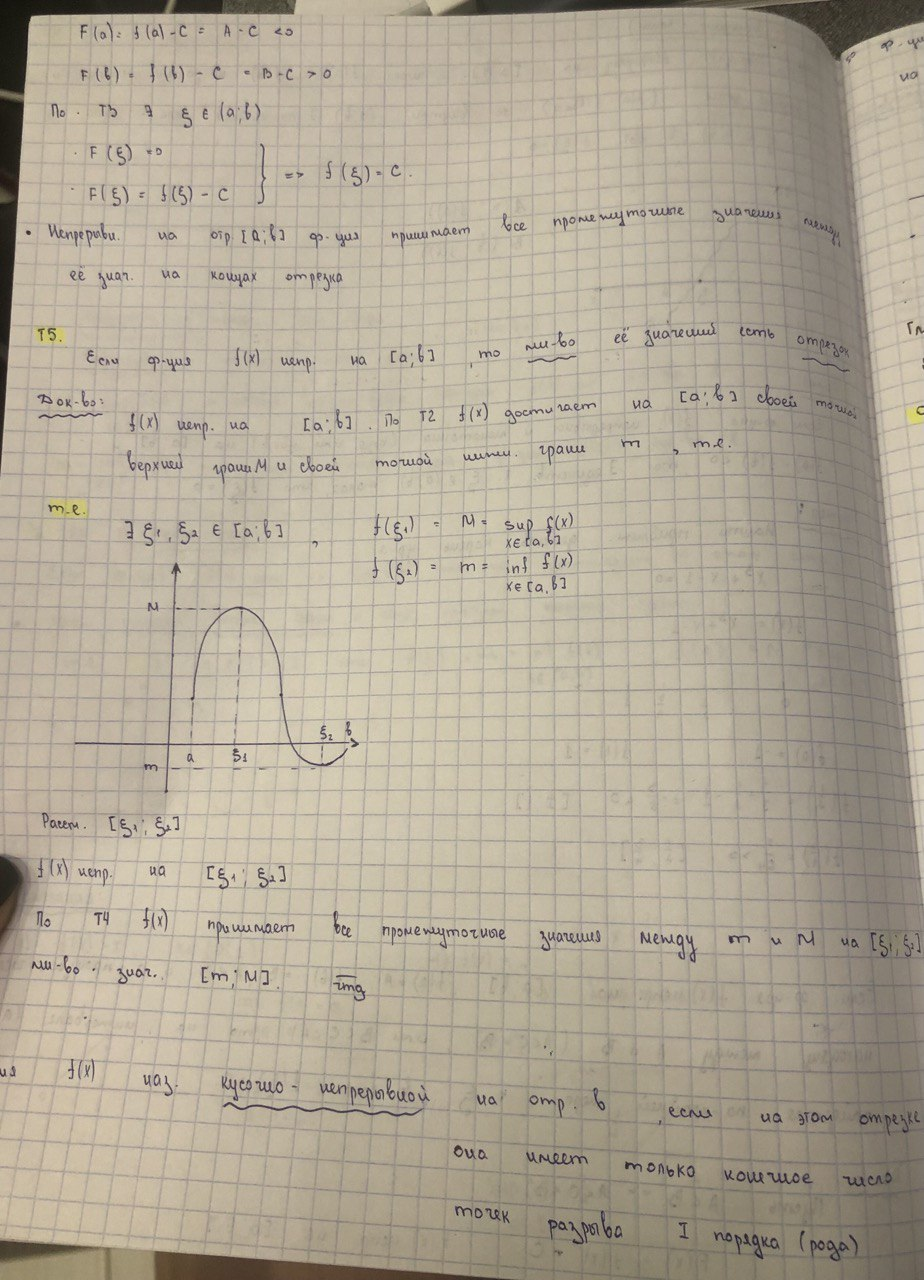 F(a) = f(a) - C = A - C < 0
F(b) = f(b) - C = B - C > 0
По T3 ∃ ξ ∈ (a; b)
· F(ξ) = 0
· F(ξ) = f(ξ) - C } => f(ξ) = C.
• Непрерывн. на отр. [a; b] ф-ция принимает все промежуточные значения между
её знач. на концах отрезка
T5.
Если ф-ция f(x) непр. на [a; b], то мн-во её значений есть отрезок
Док-во:
f(x) непр. на [a; b]. По T2 f(x) достигает на [a; b] своей точной
верхней грани M и своей точной нижн. грани m, т.е.
т.е.
∃ ξ1, ξ2 ∈ [a; b], f(ξ1) = M = sup f(x)
x∈[a,b]
f(ξ2) = m = inf f(x)
x∈[a,b]
M
a ξ1 ξ2 b
m
Рассм. [ξ1; ξ2]
f(x) непр. на [ξ1; ξ2]
По T4 f(x) принимает все промежуточные значения между m и M на [ξ1; ξ2]
мн-во знач. [m; M].
ия f(x) наз. кусочно-непрерывной на отр. в, если на этом отрезке
она имеет только конечное число
точек разрыва I порядка (рода)